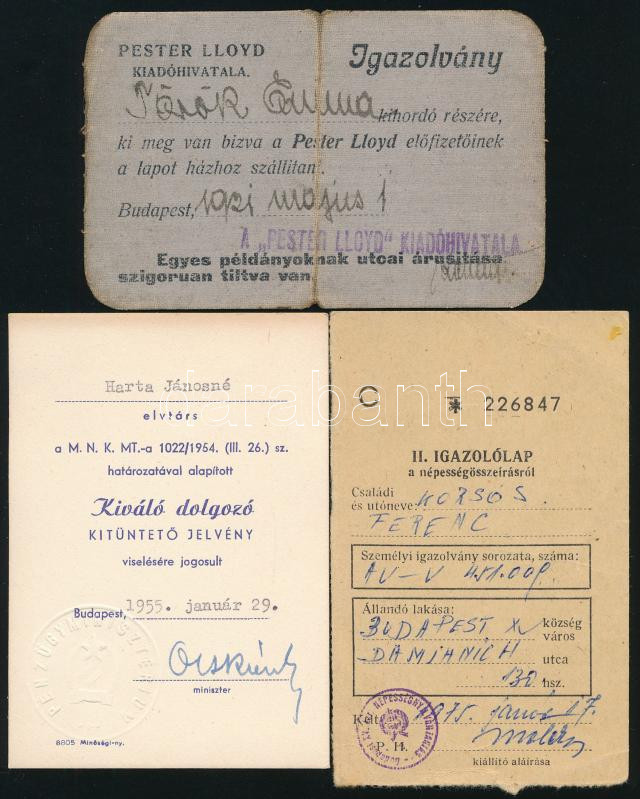 PESTER LLOYD
KIADÓHIVATALA.
Igazolvány
Török Emma kihordó részére,
ki meg van bizva a Pester Lloyd előfizetőinek
a lapot házhoz szállitani.
Budapest, 1921 május 1
A „PESTER LLOYD" KIADÓHIVATALA
Egyes példányoknak utcai árusitása
szigoruan tiltva van.
Harta Jánosné
elvtárs
a M. N. K. MT.-a 1022/1954. (III. 26.) sz.
határozatával alapított
Kiváló dolgozó
KITÜNTETŐ JELVÉNY
viselésére jogosult
Budapest, 1955. január 29.
PÉNZÜGYMINISZTÉRIUM
miniszter
8805 Minőségi-ny.
C * 226847
II. IGAZOLÓLAP
a népességösszeírásról
Családi
és utóneve: KORSÓS
FERENC
Személyi igazolvány sorozata, száma:
AU-V 451.009
Állandó lakása:
BUDAPEST X. község
város
DAMJANICH utca
130 hsz.
Kelt 1975. január 17.
P. H.
kiállító aláírása
darabanth